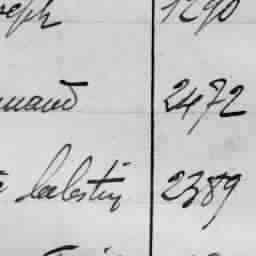 seph 1290
nand 2472
Celestin 2389